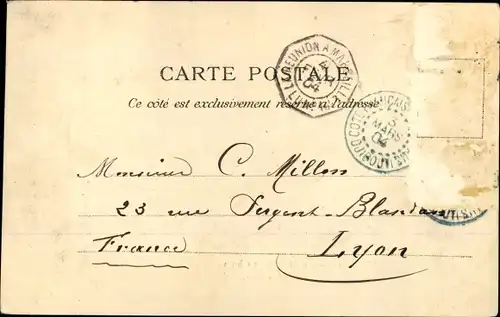 LA REUNION A MARSEILLE
4
04
CARTE POSTALE
Ce côté est exclusivement réservé à l'adresse
5
MARS
04
Monsieur C. Millon
23 rue Sergent-Blandan
France Lyon